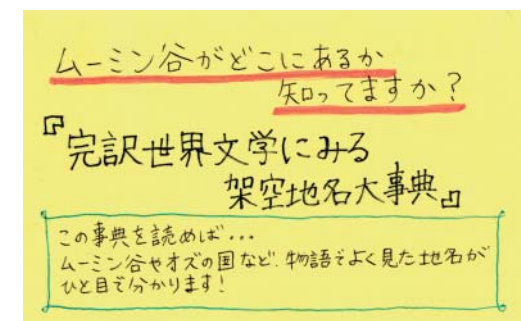 ムーミン谷がどこにあるか
知ってますか?
『完訳世界文学にみる
架空地名大事典』
この事典を読めば...
ムーミン谷やオズの国など、物語でよく見た地名が
ひと目で分かります!